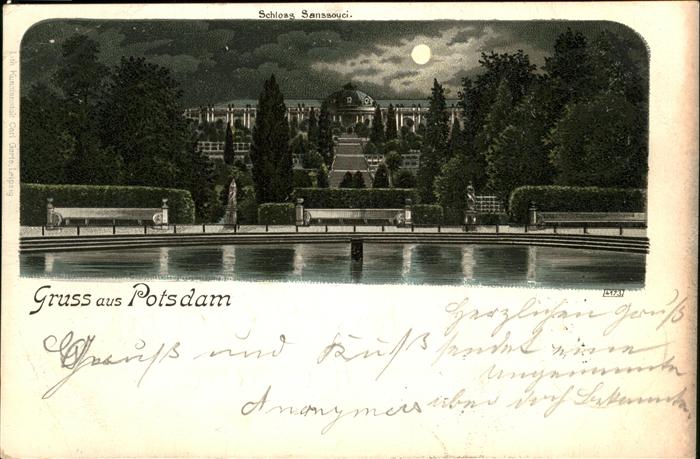 Schloss Sanssouci.
Lith. Kunstanstalt Carl Garte, Leipzig
Gruss aus Potsdam
4173
Gruß und Kuß
Anonymus
Herzlichen Gruß
sendet eine
Ungenannte
aber doch Bekannte.